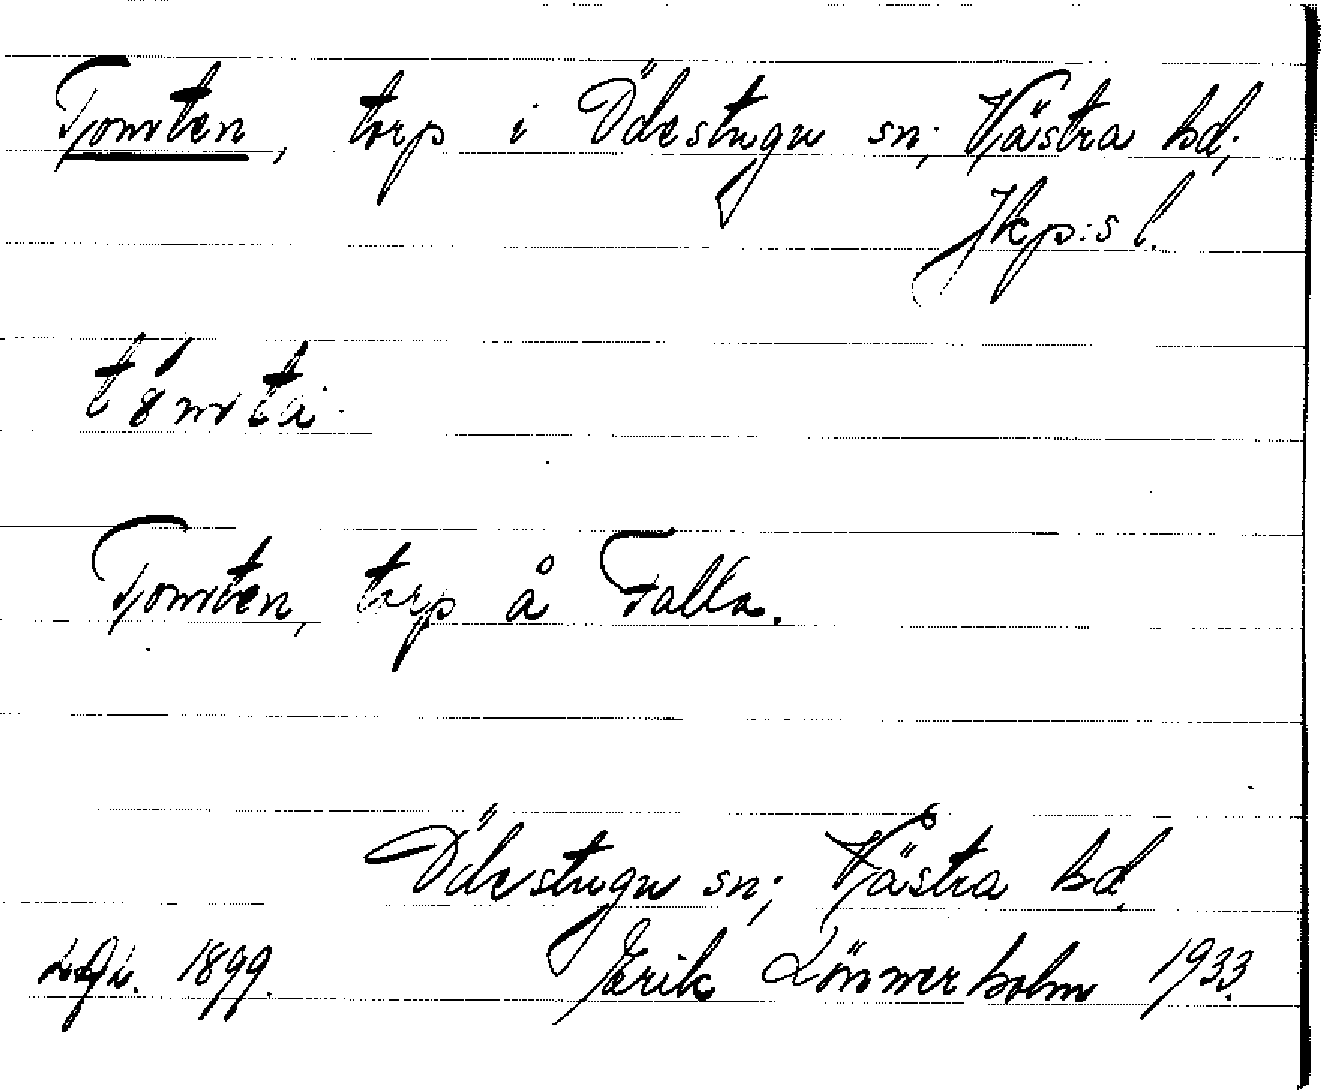 Tomten, torp i Ödestugu sn; Västra hd;
Jkp:s l.
Tomten, torp å Falla.
Ödestugu sn; Västra hd.
1899. Erik Lönnerholm 1933.